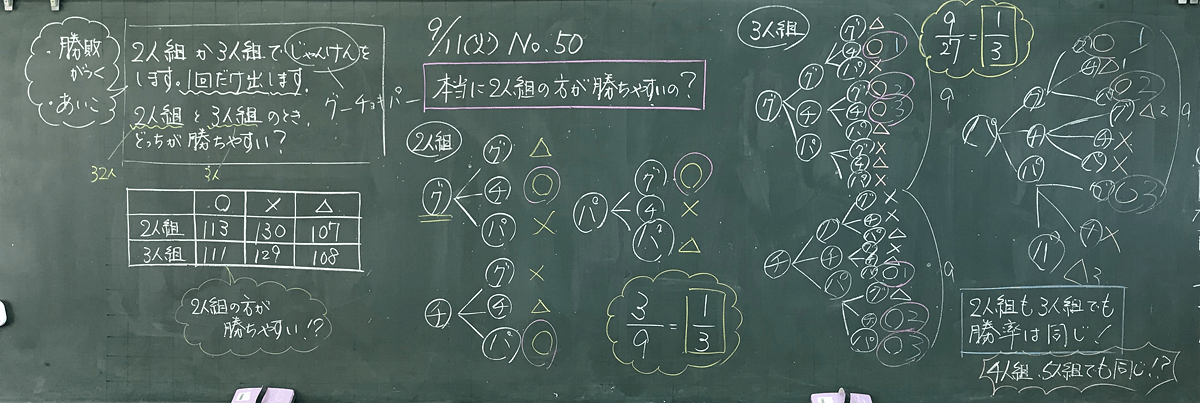 ・勝敗
がつく
・あいこ
2人組か3人組でじゃんけんを
します。1回だけ出します。
グーチョキパー
2人組と3人組のとき、
どっちが勝ちやすい?
32人
3人
○ × △
2人組 113 130 107
3人組 111 129 108
2人組の方が
勝ちやすい!?
9/11(火) No.50
本当に2人組の方が勝ちやすいの?
2人組
グ
グ △
チ ○
パ ×
チ
グ ×
チ △
パ ○
パ
グ ○
チ ×
パ △
3/9 = 1/3
3人組
グ
グ
グ △
チ ○1
パ ×
チ
グ ○2
チ ○3
パ △
パ
グ ×
チ △
パ ×
9
チ
グ
チ
パ
9
○1
○2
○3
9/27 = 1/3
パ
グ
チ
パ
○1
△1
○2
○3
△2
×
×
○3
チ ×
パ △3
9
2人組も3人組でも
勝率は同じ!
4人組、5人組でも同じ!?